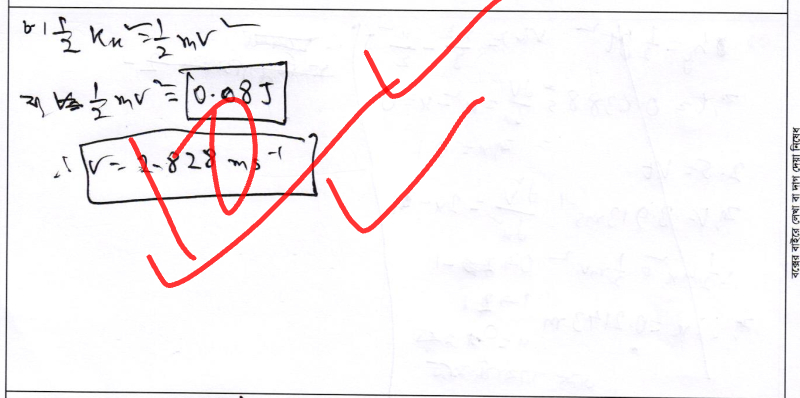 ৮। ½ Kx² = ½ mv²
½ mv² = 0.08 J
∴ v = 2.828 ms⁻¹
10
বক্সের বাইরে লেখা বা দাগ দেয়া নিষেধ